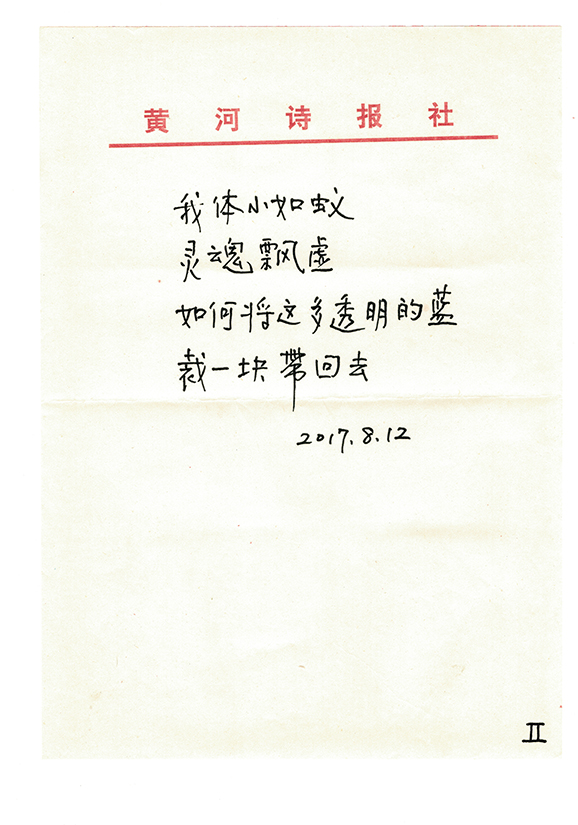 黄河诗报社
我体小如蚁
灵魂飘虚
如何将这多透明的蓝
裁一块带回去
2017.8.12
II